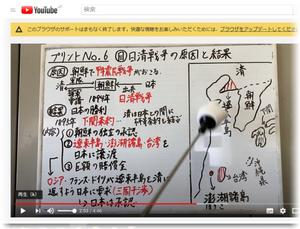 YouTube
検索
このブラウザのサポートはまもなく終了します。快適な閲覧をお楽しみいただくためには、ブラウザをアップデートしてくだ
プリントNo.6 日清戦争の原因と結果
原因 朝鮮で甲午農民戦争がおこる。
清 朝鮮 出兵 日本
1894年 日清戦争
結果 日本の勝利
1895年 下関条約
(内容) ① 朝鮮の独立の承認
② 遼東半島・澎湖諸島・台湾を
日本に譲渡
③ 巨額の賠償金
ロシア・フランス・ドイツが遼東半島を清に
返すよう日本に要求(三国干渉)
日本は承認
清
朝鮮
台湾
澎湖諸島
沖縄
再生 (k)
2:53 / 4:46